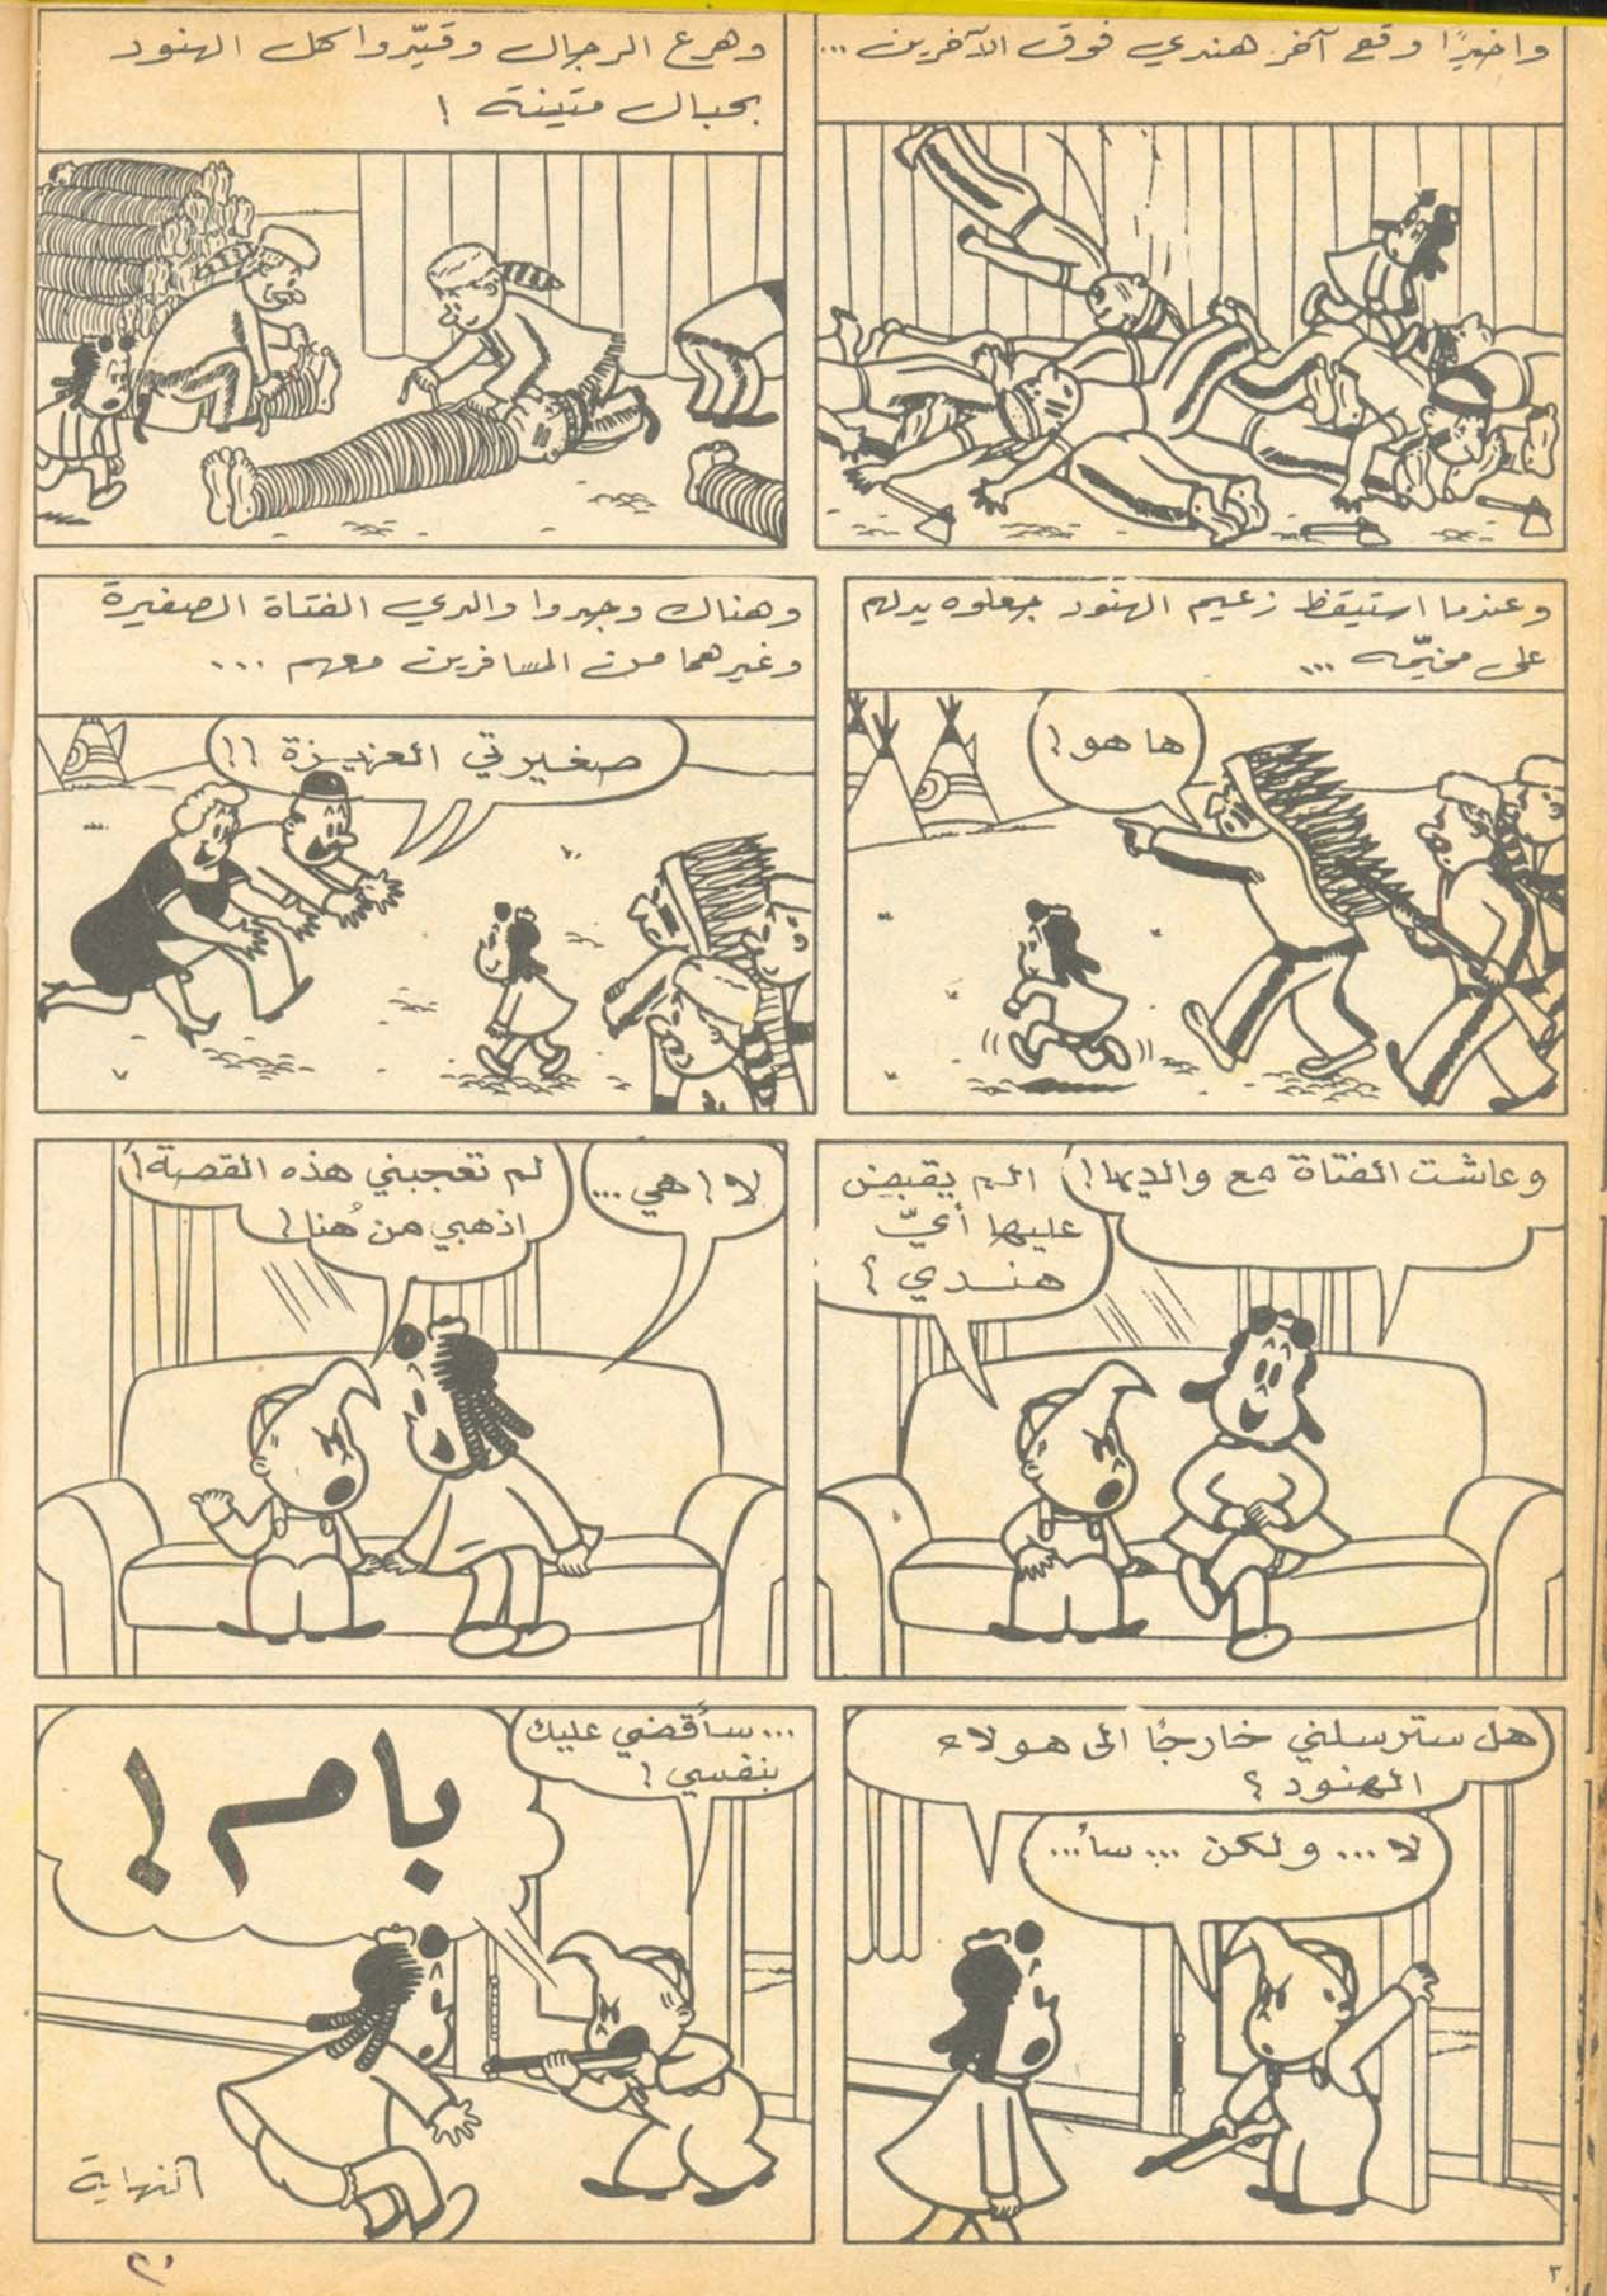 واخيرًا وقع آخر هندي فوق الآخرين ...
وهرع الرجال وقيّدوا كل الهنود
بحبال متينة !
وعندما استيقظ زعيم الهنود جعلوه يدلهم
على مخيّمه ...
ها هو !
وهناك وجدوا والدي الفتاة الصغيرة
وغيرهما من المسافرين معهم ...
صغيرتي العزيزة !!
وعاشت الفتاة مع والديها !
الم يقبض
عليها أيّ
هندي ؟
لا ! هي ...
لم تعجبني هذه القصة !
اذهبي من هُنا !
هل سترسلني خارجًا الى هولاء
الهنود ؟
لا ... ولكن ... سأ...
... سأقضي عليك
بنفسي !
بام !
النهاية
٣